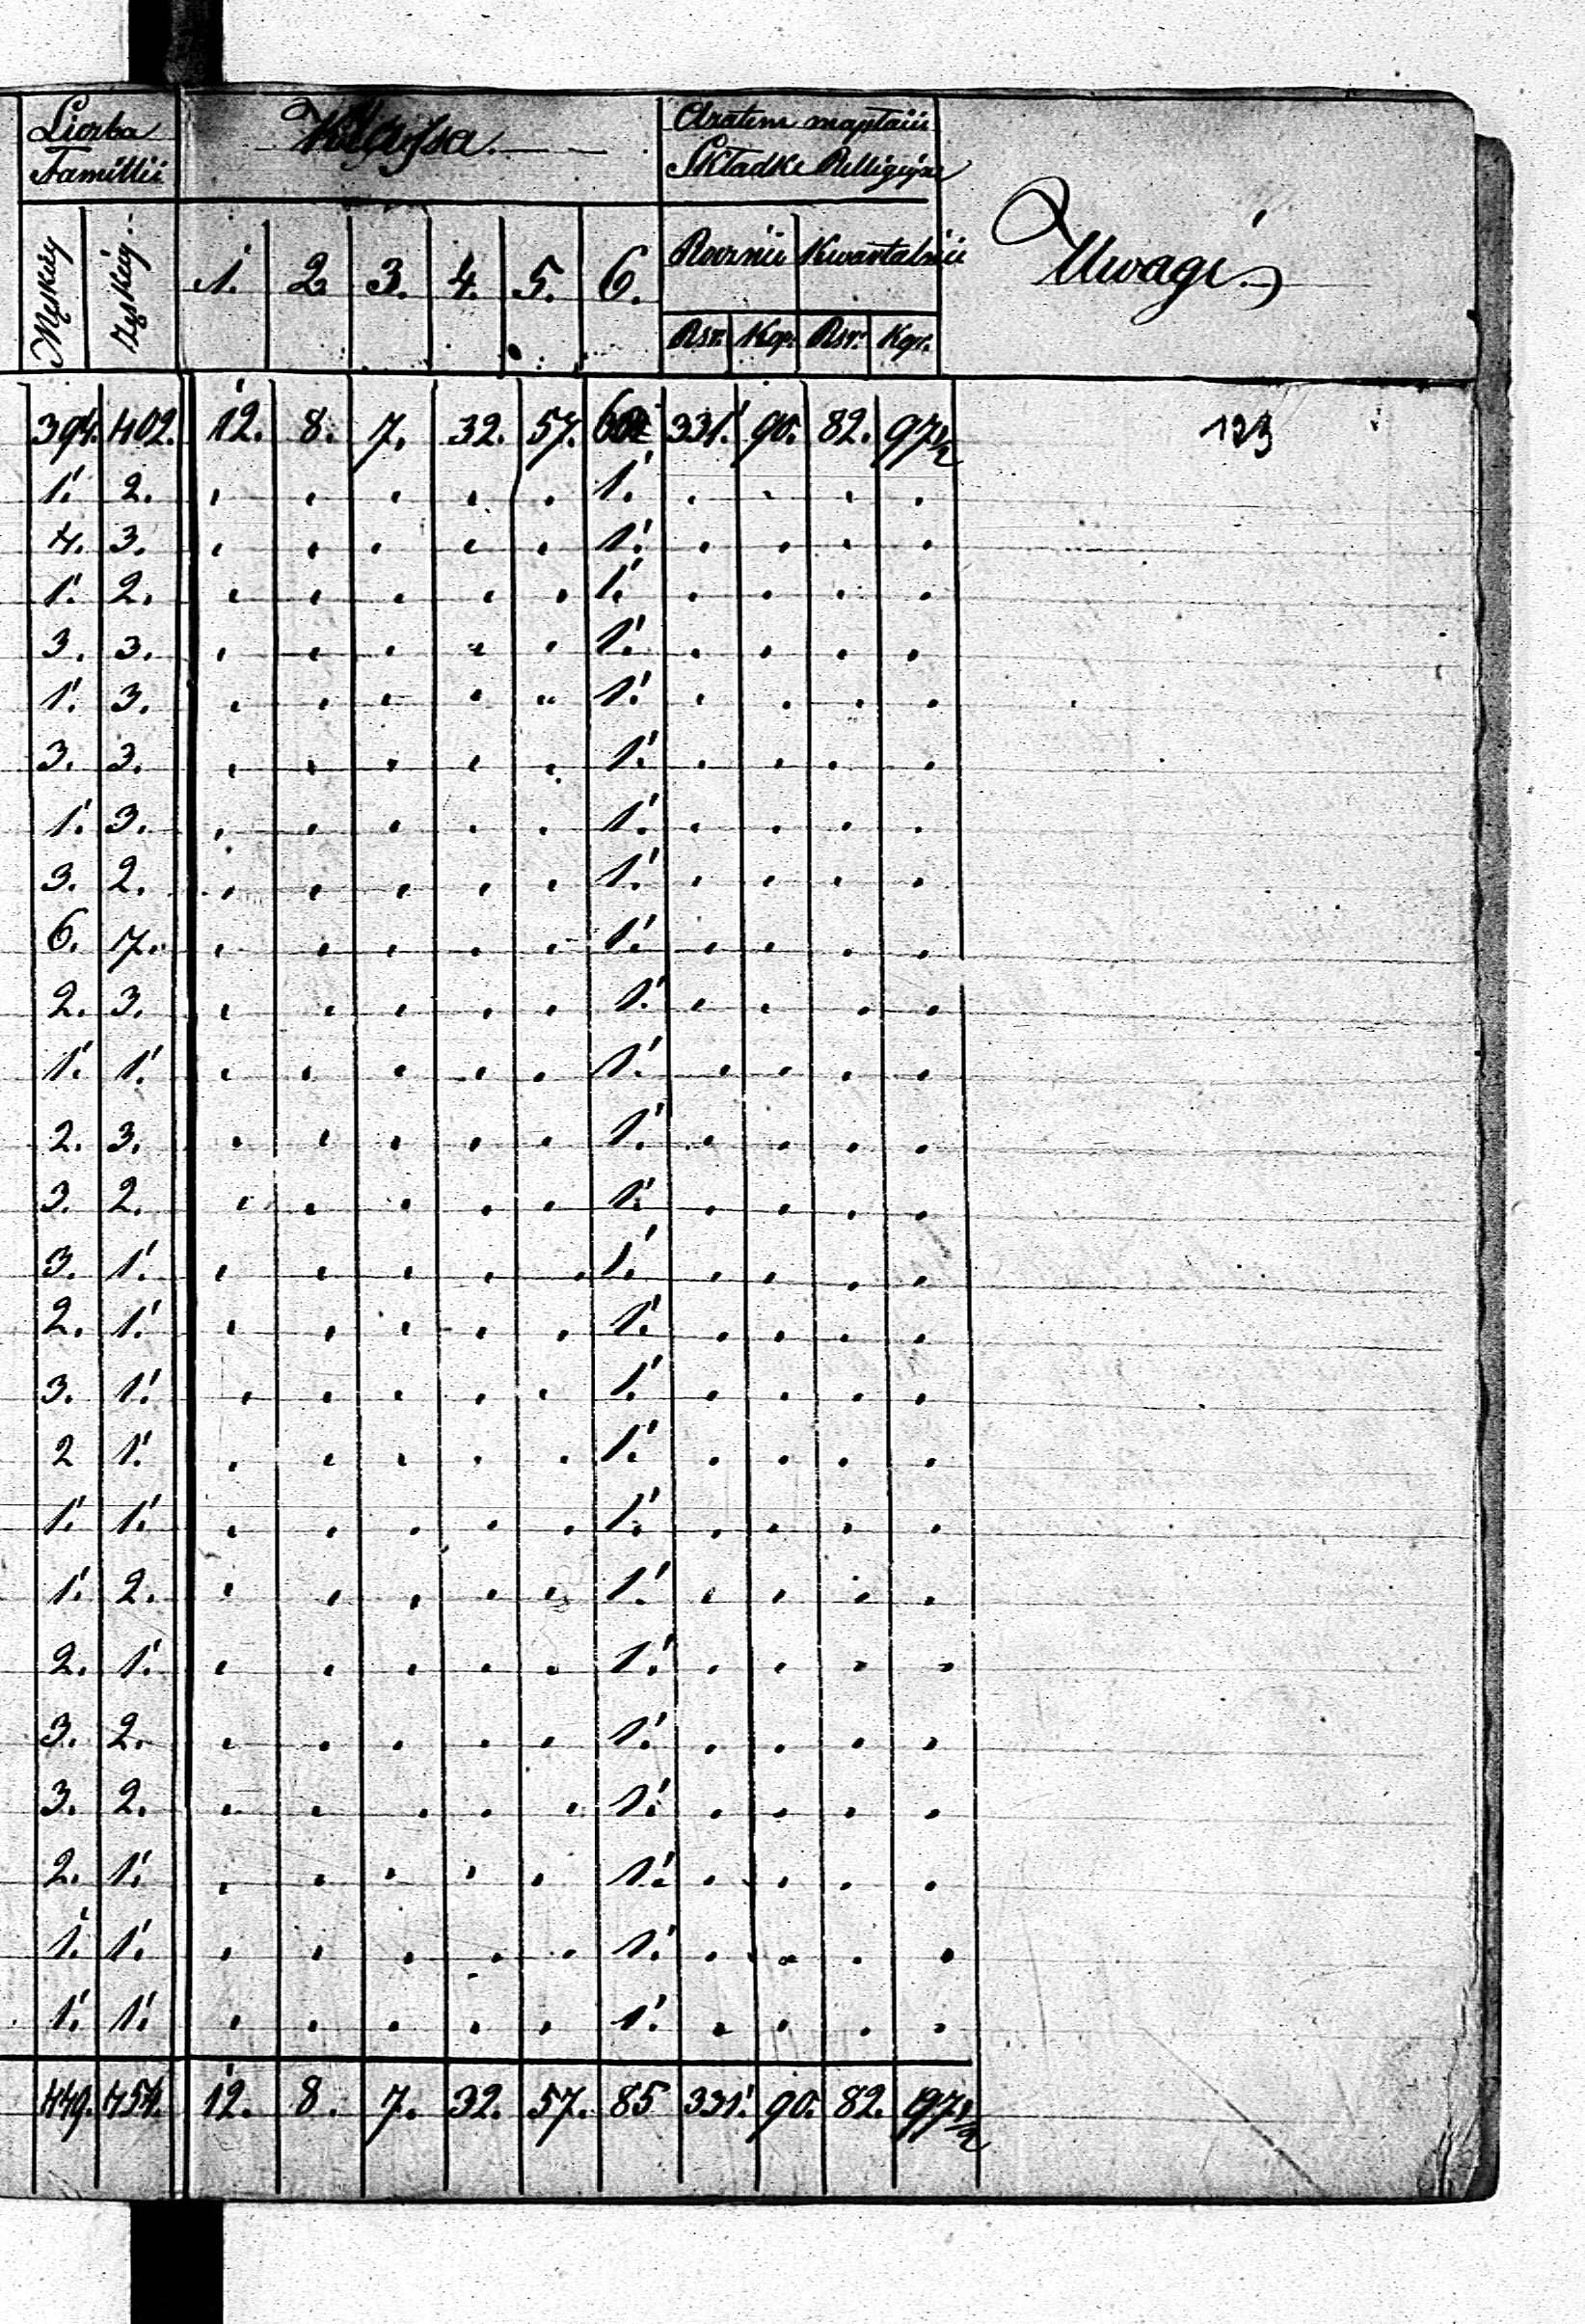 Liczba Klassa. Aratem maptaiú
Familii Składke Relligijne
Męskiey Żeńskiey 1. 2 3. 4. 5. 6. Rocznie Kwartalnie Uwagi
Rsr. Kop. Rsr. Kop.
394. 402. 12. 8. 7. 32. 57. 331. 90. 82. 97 1/2 123
1. 2. . . . . . 1. . . . .
4. 3. . . . . . 1. . . . .
1. 2. . . . . . 1. . . . .
3. 3. . . . . . 1. . . . .
1. 3. . . . . . 1. . . . .
3. 3. . . . . . 1. . . . .
1. 3. . . . . . 1. . . . .
3. 2. . . . . . 1. . . . .
6. 7. . . . . . 1. . . . .
2. 3. . . . . . 1. . . . .
1. 1. . . . . . 1. . . . .
2. 3. . . . . . 1. . . . .
3. 2. . . . . . 1. . . . .
3. 1. . . . . . 1. . . . .
2. 1. . . . . . 1. . . . .
3. 1. . . . . . 1. . . . .
2 1. . . . . . 1. . . . .
1. 1. . . . . . 1. . . . .
1. 2. . . . . . 1. . . . .
2. 1. . . . . . 1. . . . .
3. 2. . . . . . 1. . . . .
3. 2. . . . . . 1. . . . .
2. 1. . . . . . 1. . . . .
1. 1. . . . . . 1. . . . .
1. 1. . . . . . 1. . . . .
449. 454. 12. 8. 7. 32. 57. 85 331. 90. 82. 97 1/2